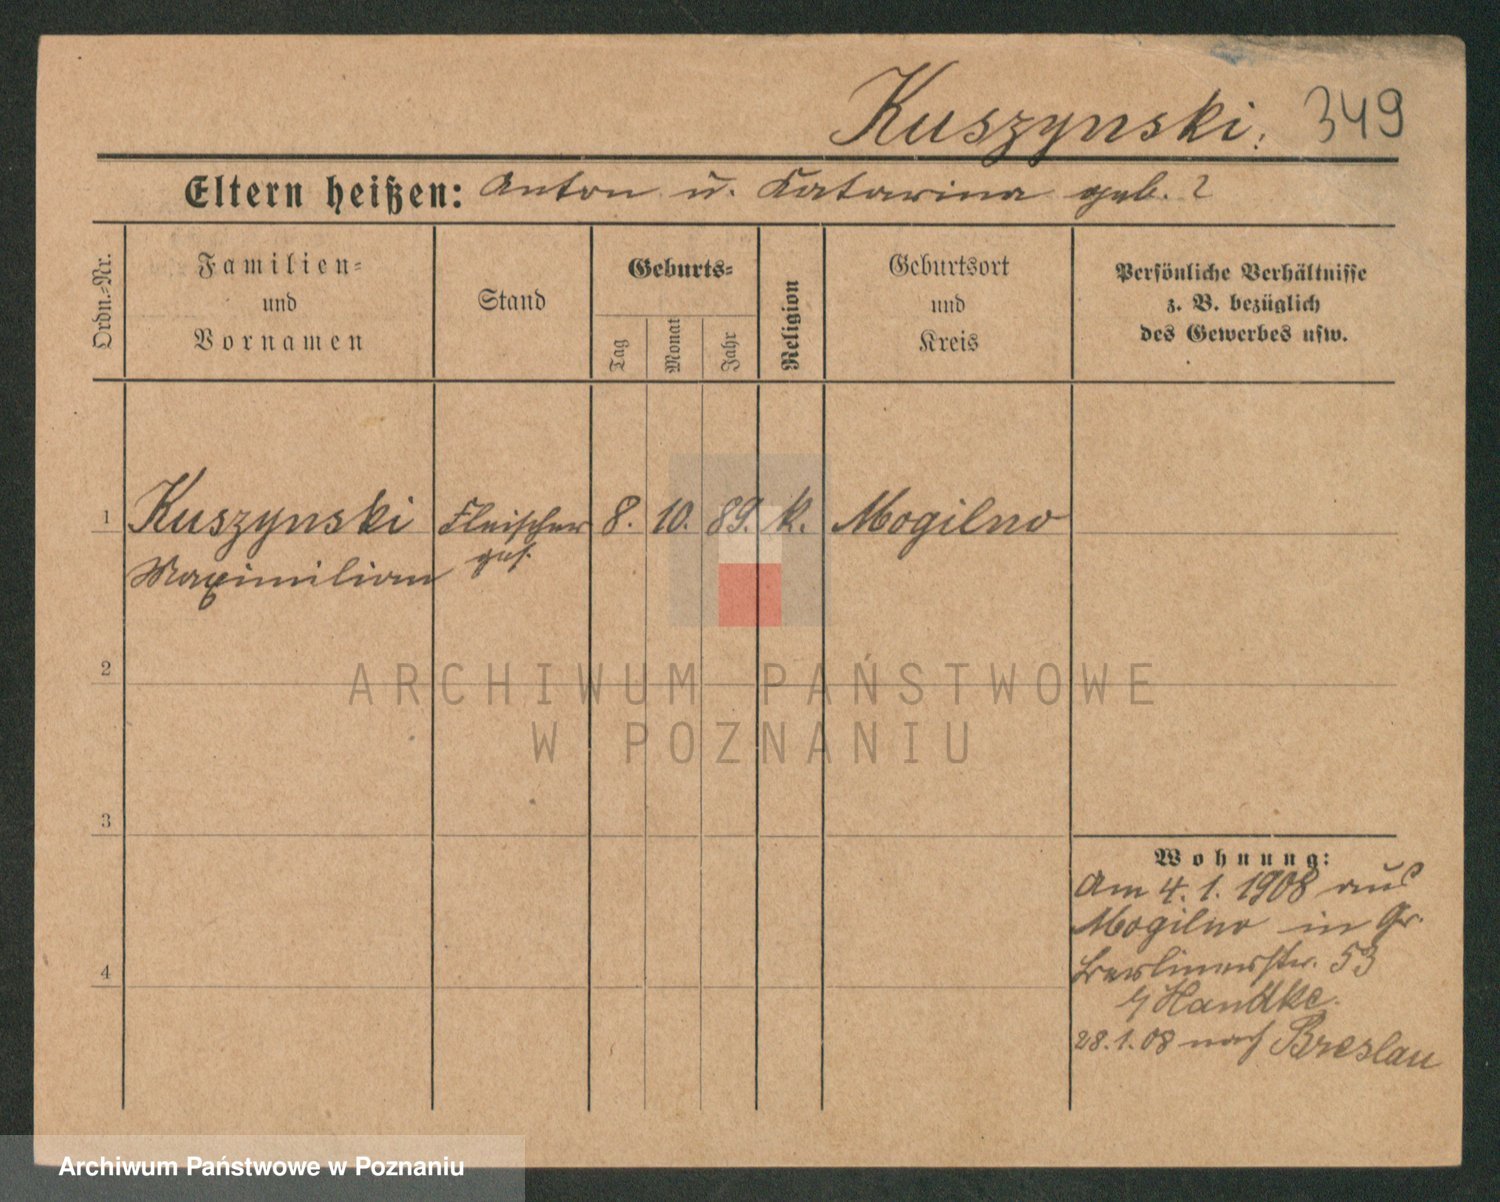 Kuszynski. 349
Eltern heißen: Anton u. Katarina geb. ?
Ordn.-Nr.
Familien-
und
Vornamen
Stand
Geburts-
Tag
Monat
Jahr
Religion
Geburtsort
und
Kreis
Persönliche Verhältnisse
z. B. bezüglich
des Gewerbes usw.
1 Kuszynski Fleischer 8. 10. 89. k. Mogilno
Maximilian ges.
2
ARCHIWUM PAŃSTWOWE
W POZNANIU
3
Wohnung:
Am 4.1.1908 aus
Mogilno in Gr.
Berlinerstr. 53
b/ Handtke.
28.1.08 nach Breslau
4
Archiwum Państwowe w Poznaniu